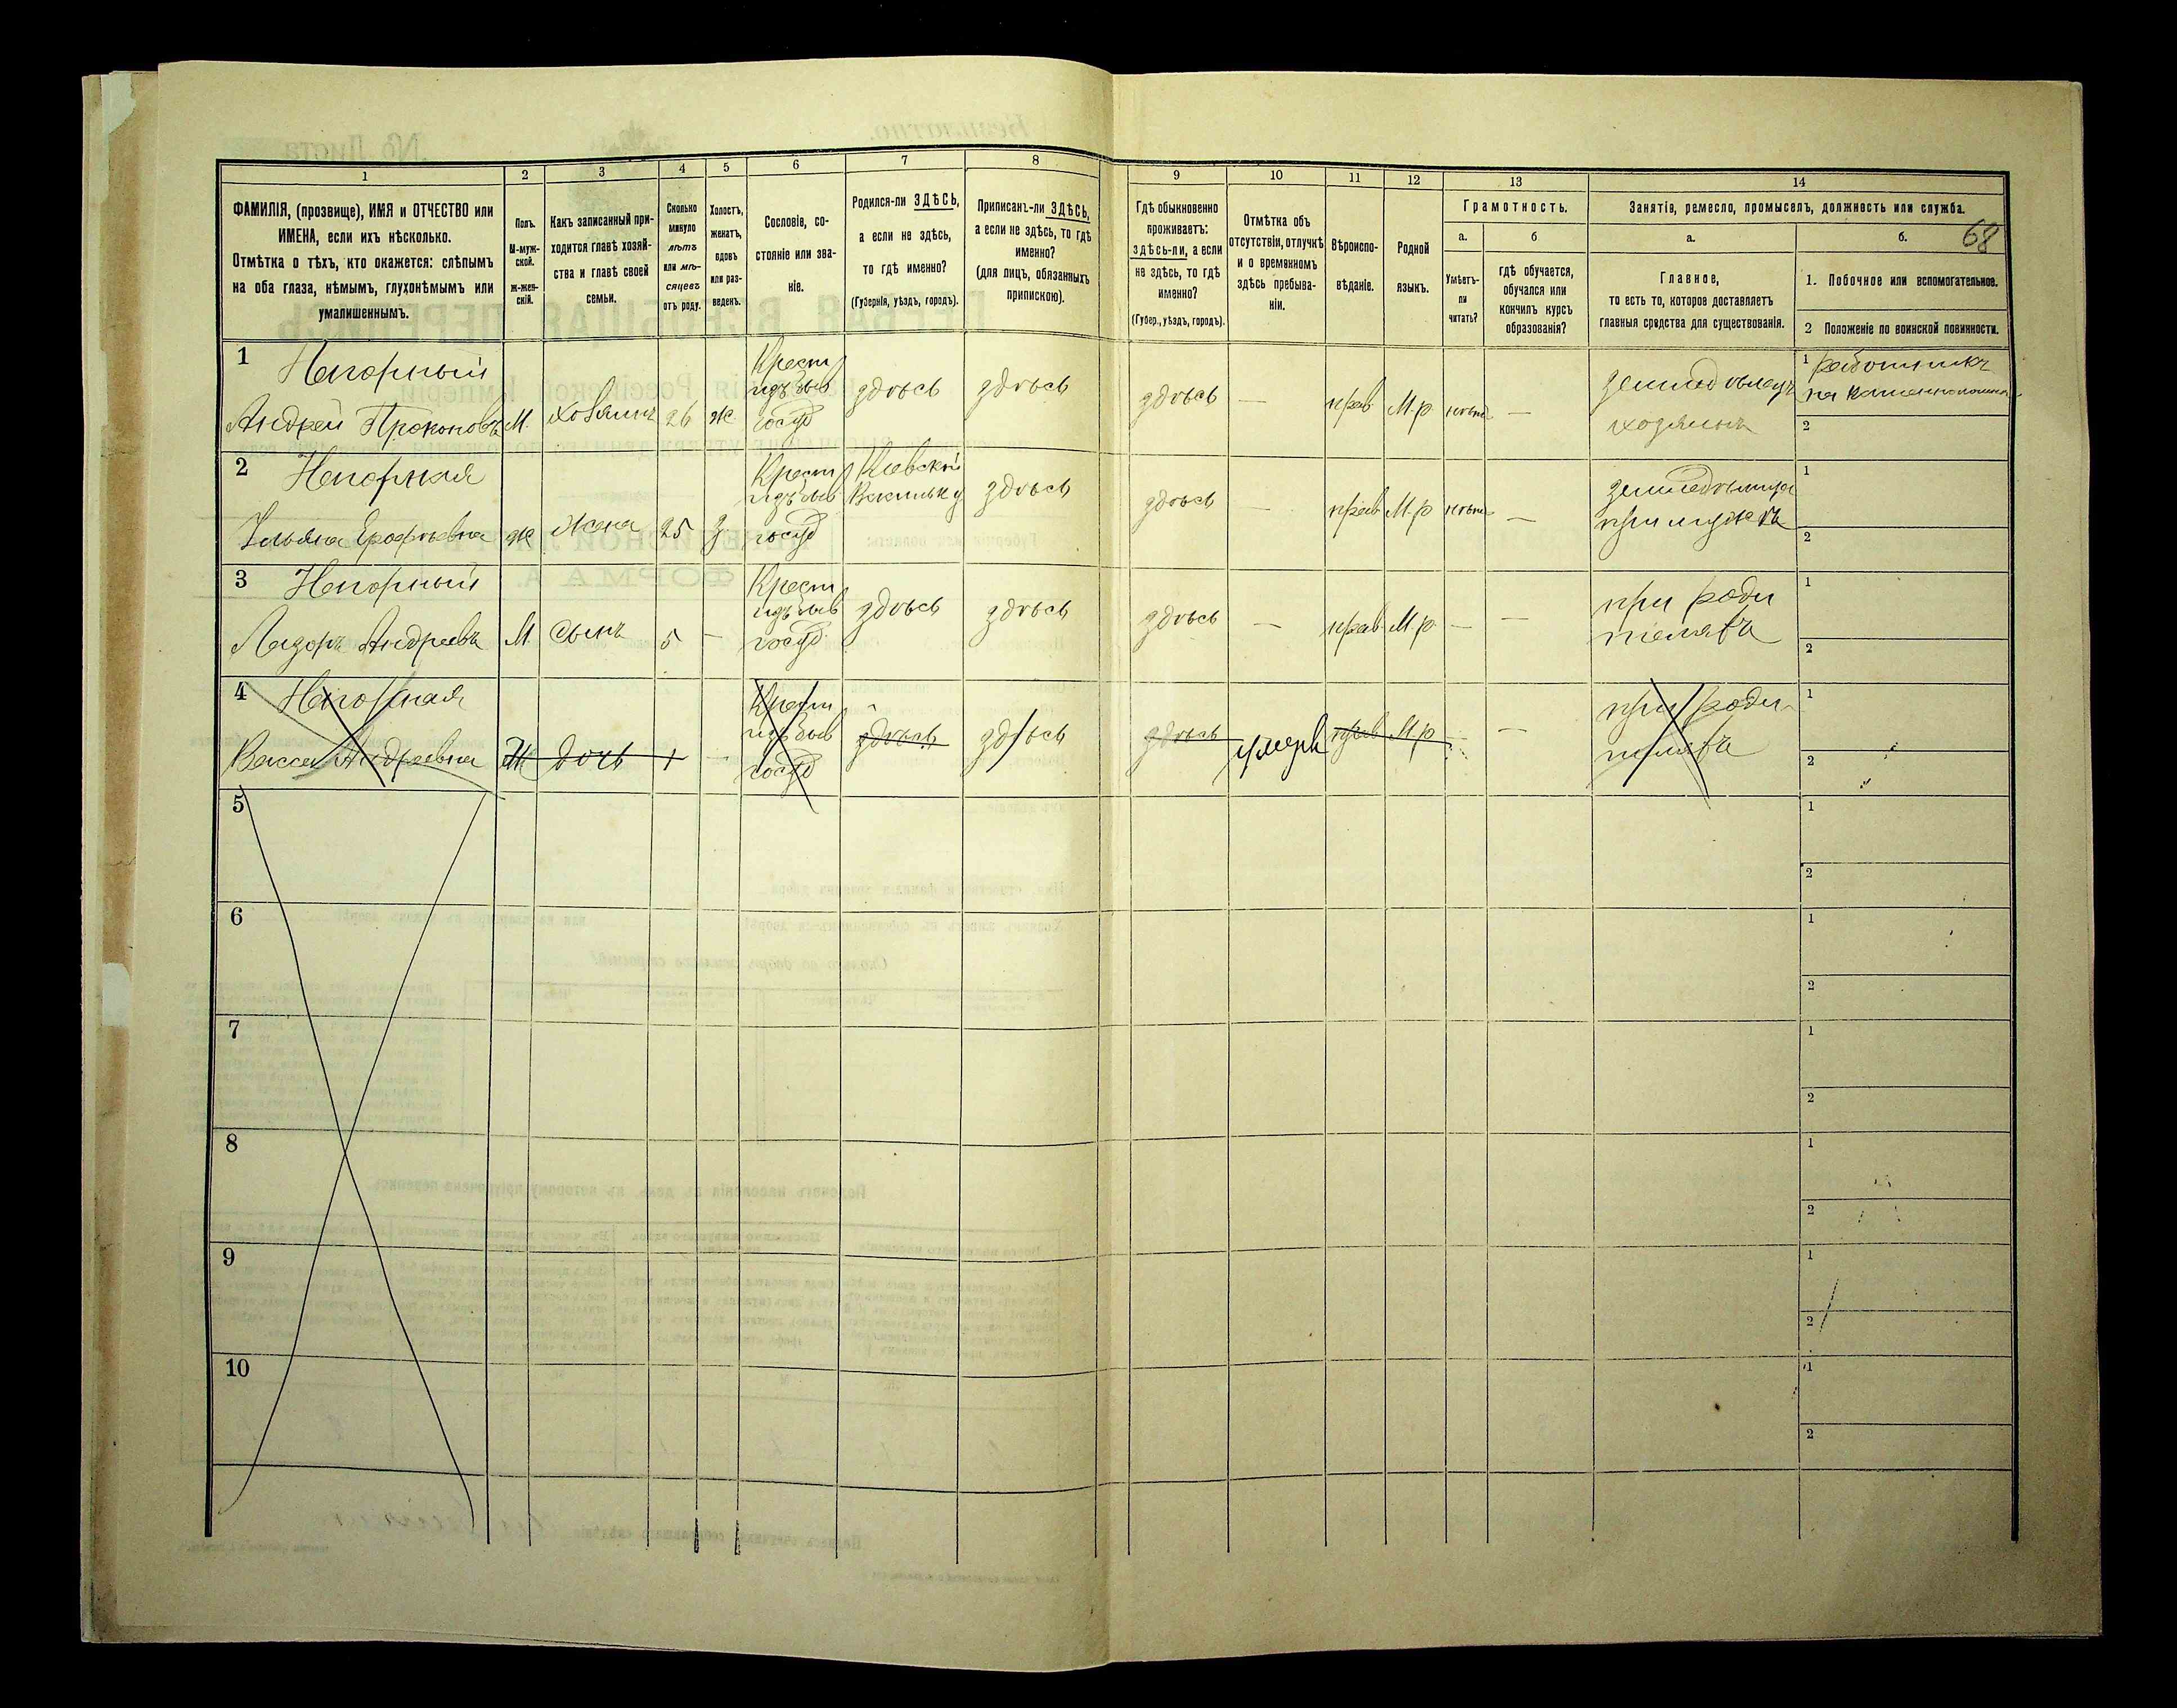 68
1 2 3 4 5 6 7 8 9 10 11 12 13 14
ФАМИЛІЯ, (прозвище), ИМЯ и ОТЧЕСТВО или
ИМЕНА, если ихъ нѣсколько.
Отмѣтка о тѣхъ, кто окажется: слѣпымъ
на оба глаза, нѣмымъ, глухонѣмымъ или
умалишеннымъ.
Полъ.
М-муж-
ской.
ж-жен-
скій.
Какъ записанный при-
ходится главѣ хозяй-
ства и главѣ своей
семьи.
Сколько
минуло
лѣтъ
или мѣ-
сяцевъ
отъ роду.
Холостъ,
женатъ,
вдовъ
или раз-
веденъ.
Сословіе, со-
стояніе или зва-
ніе.
Родился-ли ЗДѢСЬ,
а если не здѣсь,
то гдѣ именно?
(Губернія, уѣздъ, городъ).
Приписанъ-ли ЗДѢСЬ,
а если не здѣсь, то гдѣ
именно?
(для лицъ, обязанныхъ
припискою).
Гдѣ обыкновенно
проживаетъ:
здѣсь-ли, а если
не здѣсь, то гдѣ
именно?
(Губер., уѣздъ, городъ).
Отмѣтка объ
отсутствіи, отлучкѣ
и о временномъ
здѣсь пребыва-
ніи.
Вѣроиспо-
вѣданіе.
Родной
языкъ.
Грамотность.
а.
Умѣетъ-
ли
читать?
б
гдѣ обучается,
обучался или
кончилъ курсъ
образованія?
Занятія, ремесло, промыселъ, должность или служба.
а.
Главное,
то есть то, которое доставляетъ
главныя средства для существованія.
б.
1. Побочное или вспомогательное.
2 Положеніе по воинской повинности.
1 Непорный
Андрей Прокоповъ
М. хозяинъ 26 ж
Крест
изъ быв
госуд
здѣсь здѣсь здѣсь — прав М.р. нѣтъ —
земледѣлецъ
хозяинъ
1 работникъ
на каменноломни
2
2 Непорная
Ульяна Ерофѣевна
ж жена 25 з.
Крест
изъ быв
госуд
Кіевской
Васильк у
здѣсь здѣсь — прав М.р нѣтъ —
земледѣлица
при мужѣ
1
2
3 Непорный
Лазорь Андреевъ
М сынъ 5 —
Крест
изъ быв
госуд
здѣсь здѣсь здѣсь — прав М.р. — —
при роди
теляхъ
1
2
4 Непорная
Васса Андреевна
Ж дочь 1 —
Крест
изъ быв
госуд
здѣсь здѣсь здѣсь умерла прав М.р —
при роди-
теляхъ
1
2
5
1
2
6
1
2
7
1
2
8
1
2
9
1
2
10
1
2